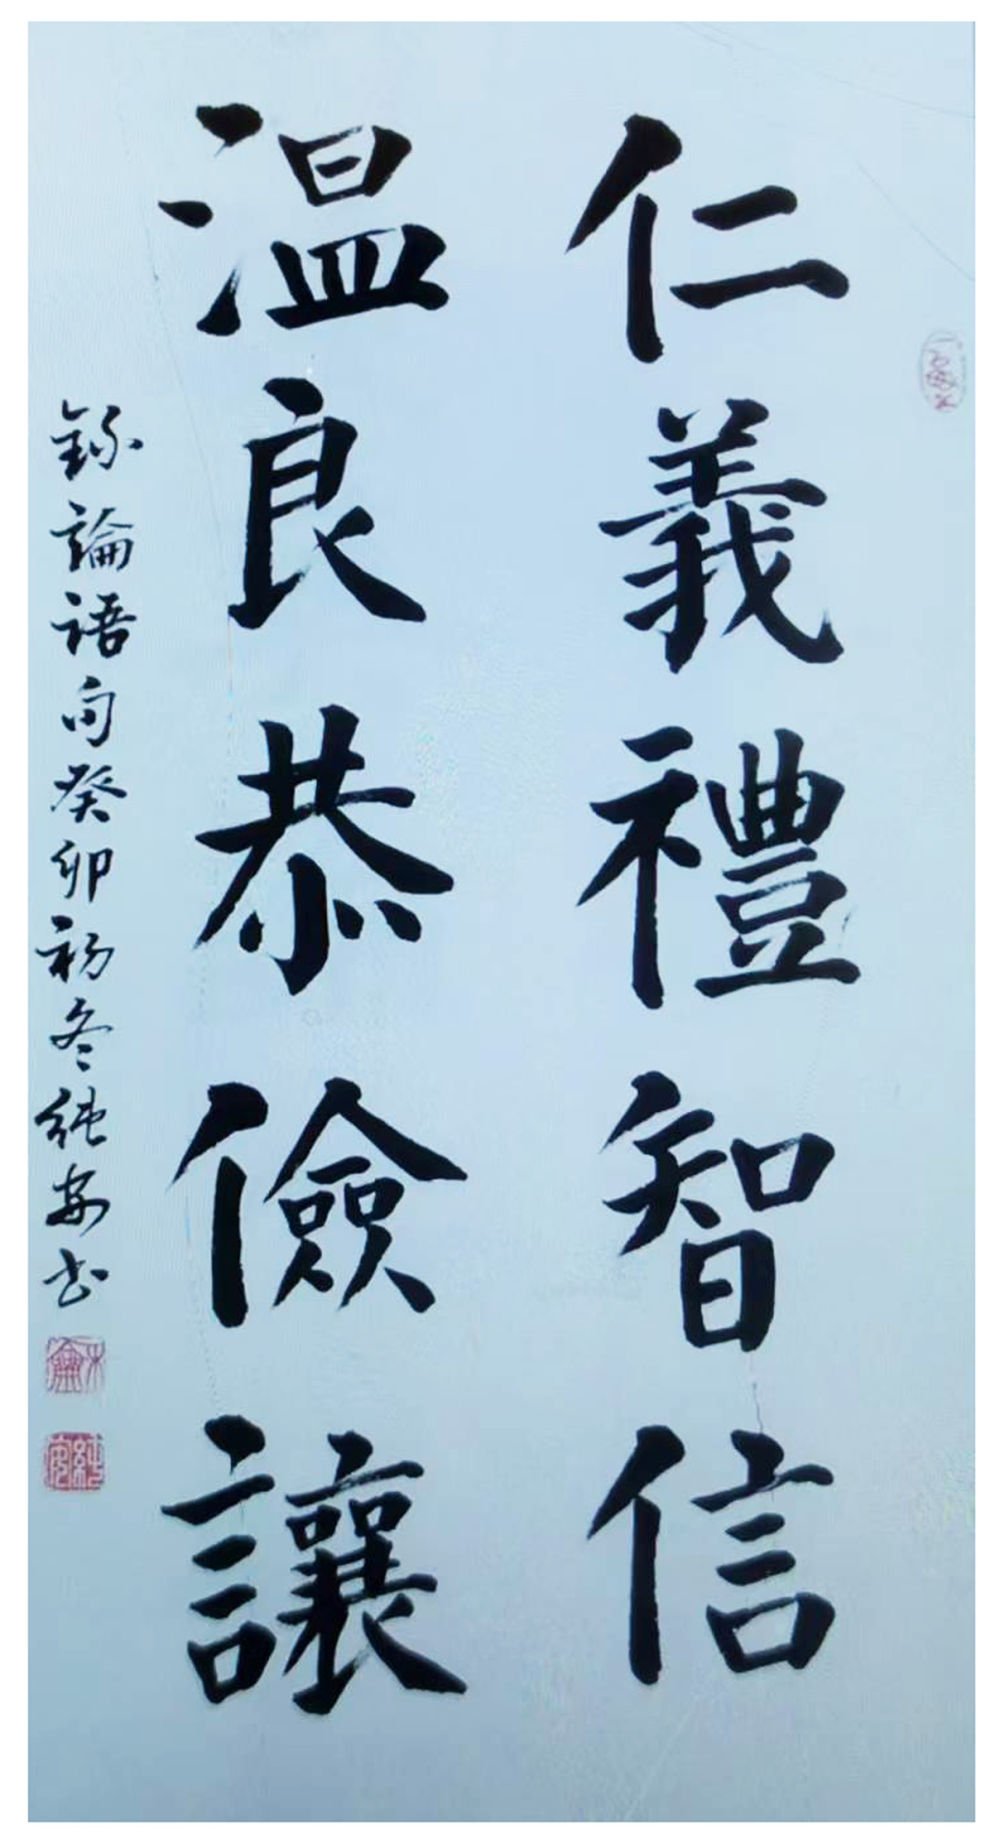 仁義禮智信
温良恭儉讓
錄論語句癸卯初冬純安书